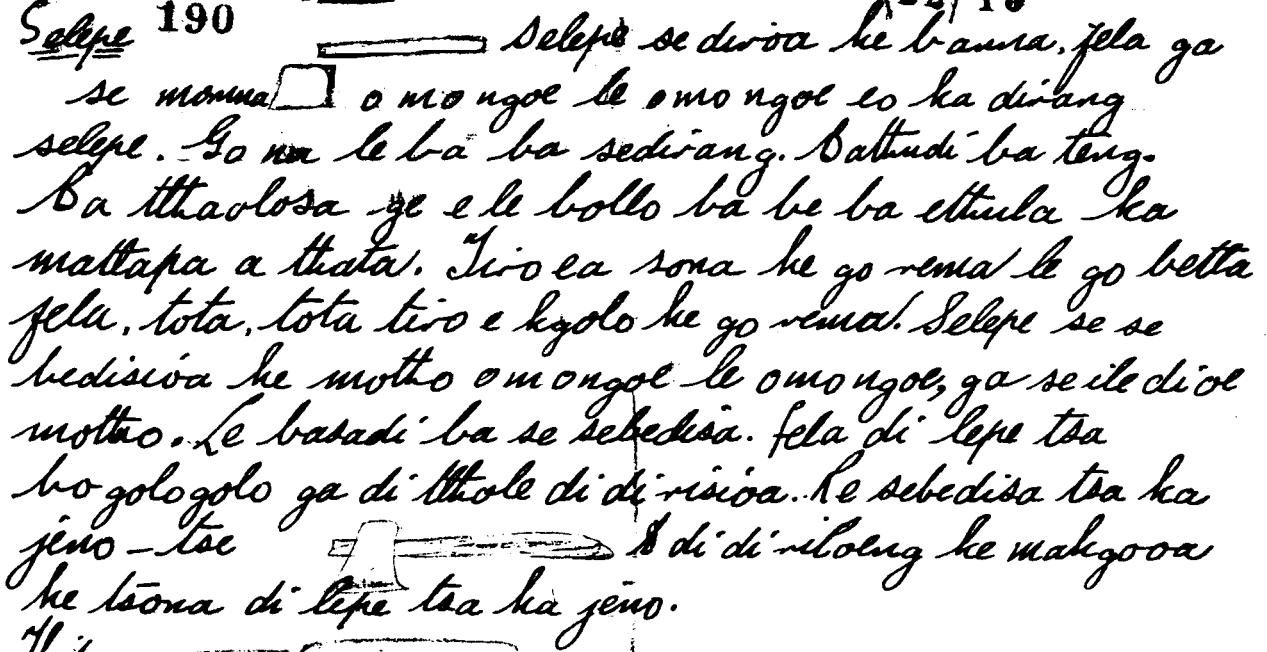 Selepe 190 Selepe se diroa ke banna, fela ga
se monna o mongoe le omongoe eo ka dirang
selepe. Go na le ba ba sedirang. Bathudi ba teng.
Ba tlhaolosa ge e le bollo ba be ba ethula ka
matlapa a thata. Tiro ea sona ke go rema le go betla
fela, tota, tota tiro e kgolo ke go rema. Selepe se se
bedisioa ke motho omongoe le omongoe, ga se ile dioe
motho. Le basadi ba se sebedisa. Fela di lepe tsa
bogologolo ga di tlhole di dirisioa. Re sebedisa tsa ka
jeno - tse di diriloeng ke makgooa
ke tsona di lepe tsa ka jeno.